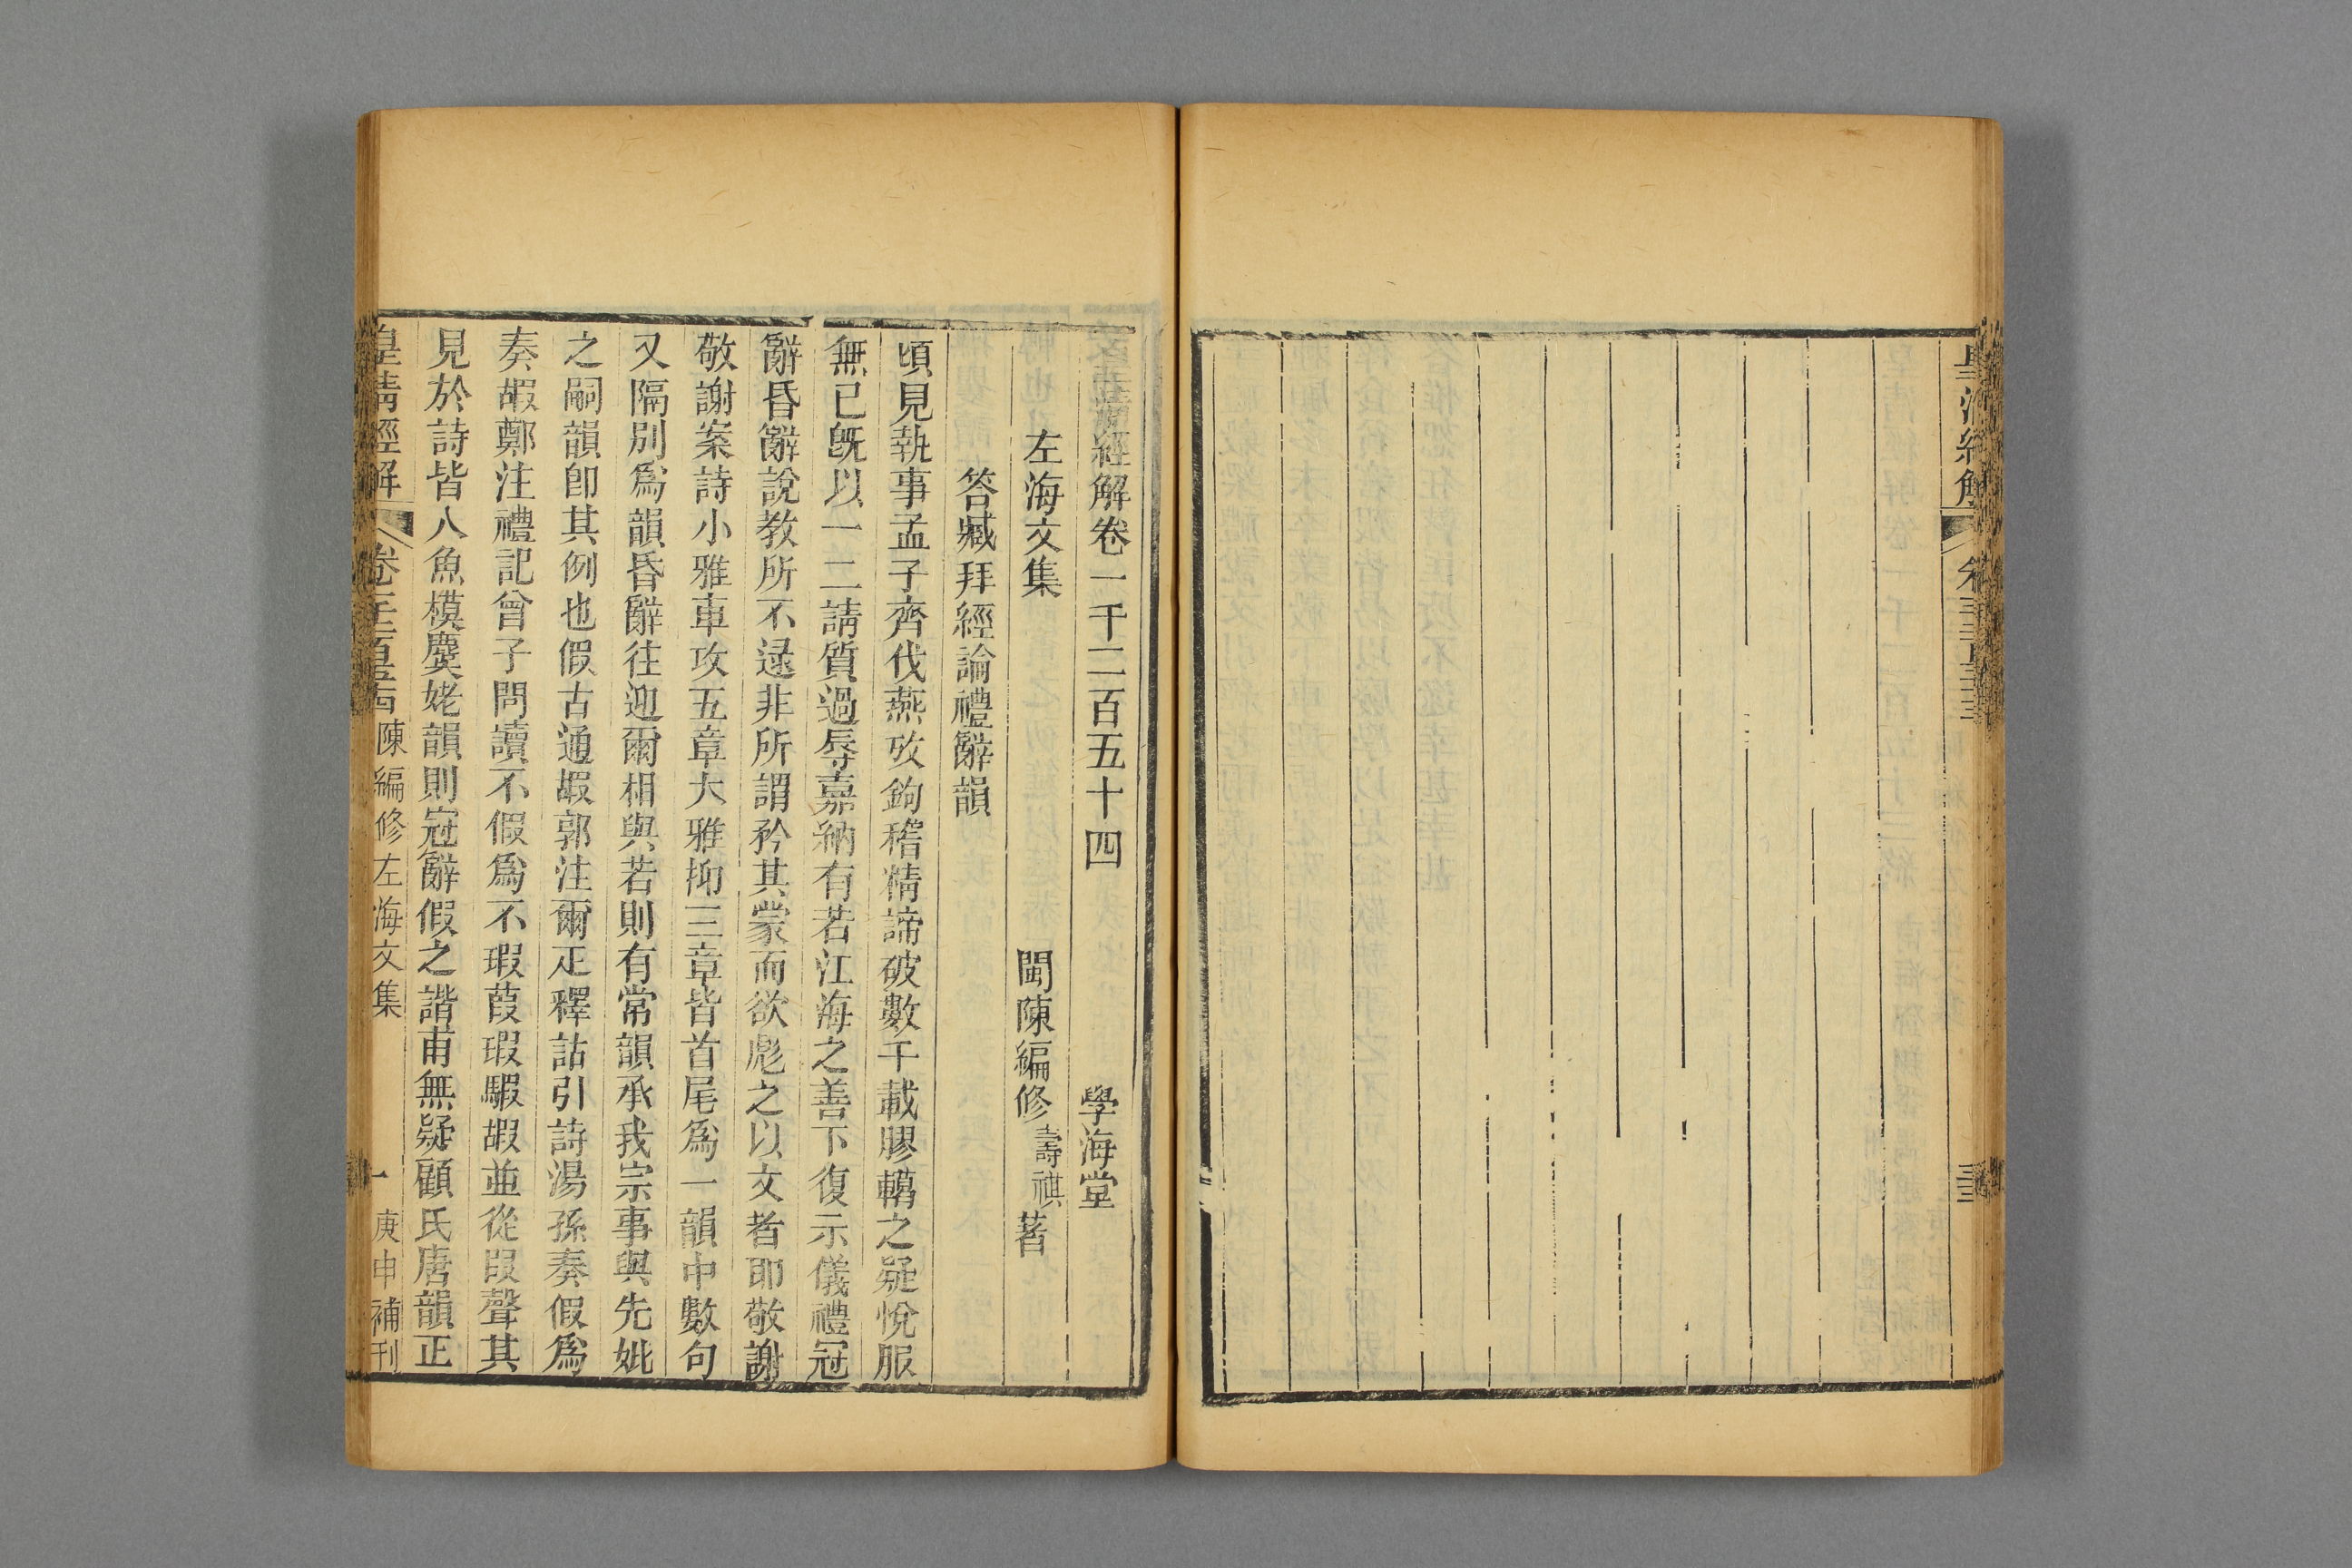 皇清經解
皇清經解卷一千二百五十四 學海堂
左海文集 閩陳編修壽祺著
答臧拜經論禮辭韻
頃見執事孟子齊伐燕攷鉤稽精諦破數千載膠轕之疑悅服
無已旣以一二請質過辱嘉納有若江海之善下復示儀禮冠
辭昏辭說教所不逮非所謂矜其蒙而欲彪之以文者耶敬謝
敬謝案詩小雅車攻五章大雅抑三章皆首尾爲一韻中數句
又隔別爲韻昏辭往迎爾相與若則有常韻承我宗事與先妣
之嗣韻卽其例也假古通嘏郭注爾疋釋詁引詩湯孫奏假爲
奏嘏鄭注禮記曾子問讀不假爲不瑕葭瑕騢嘏並從叚聲其
見於詩皆入魚模麌姥韻則冠辭假之諧甫無疑顧氏唐韻正
皇清經解 卷千二百五十四 陳編修左海文集 一 庚申補刊